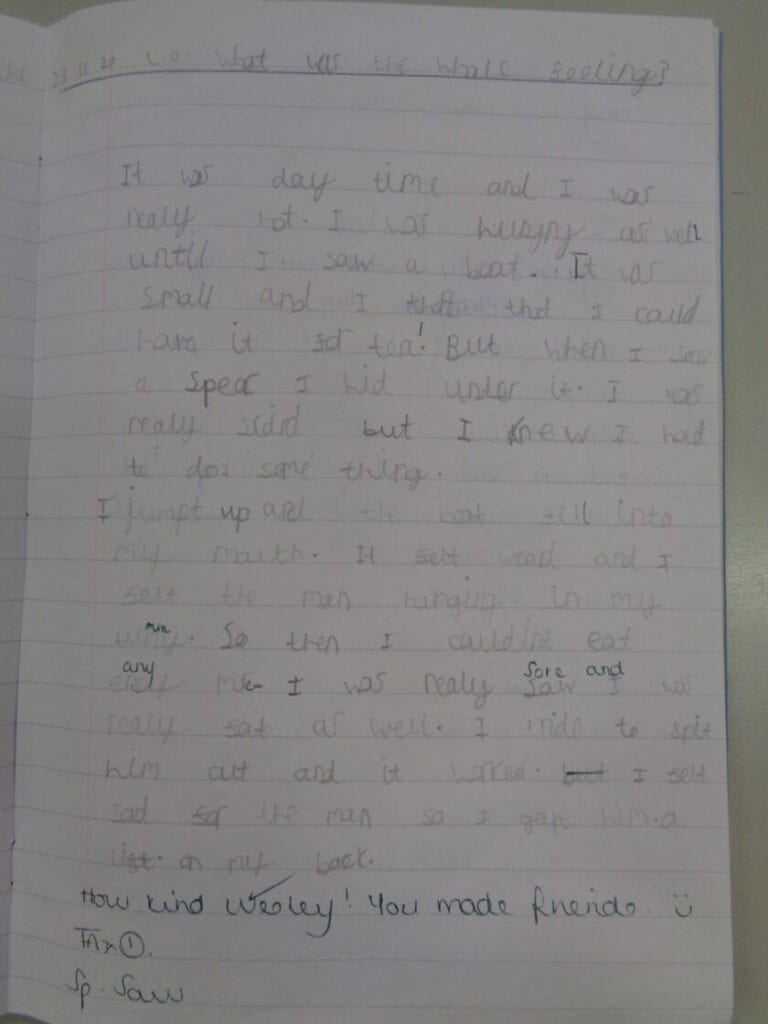 23 11 20 L.O. What was the whale feeling?
It was day time and I was
realy hot. I was hungry as well
untill I saw a boat. It was
small and I that I could
have it for tea! But when I saw
a spear I hid under it. I was
realy scard but I knew I had
to do some thing.
I jumpt up and the boat fell into
my mouth. It felt wead and I
felt the man hanging in my
So then I could'nt eat
any I was realy sore and I was
realy sat as well. I tride to spit
him out and it worked. but I felt
sad for the man so I gave him a
on my back.
How kind Wesley! You made friends.
TA x 1.
Sp. Saw